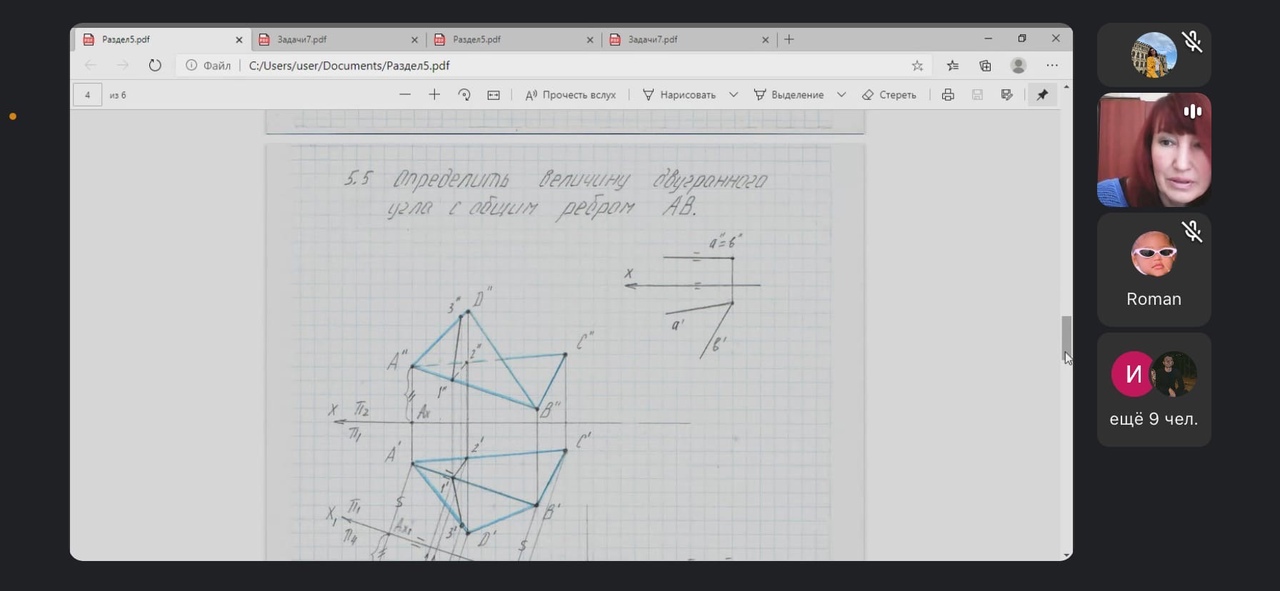 Раздел5.pdf
Задачи7.pdf
Раздел5.pdf
Задачи7.pdf
Файл
C:/Users/user/Documents/Раздел5.pdf
4
из 6
Прочесть вслух
Нарисовать
Выделение
Стереть
5.5 Определить величину двугранного
угла с общим ребром АВ.
a''≡b''
X
a'
b'
3''
D''
2''
C''
A''
1''
B''
X
П2
П1
Ax
A'
2'
C'
1'
B'
S
X1
П1
П4
Ax1
3'
D'
S
Roman
И
ещё 9 чел.